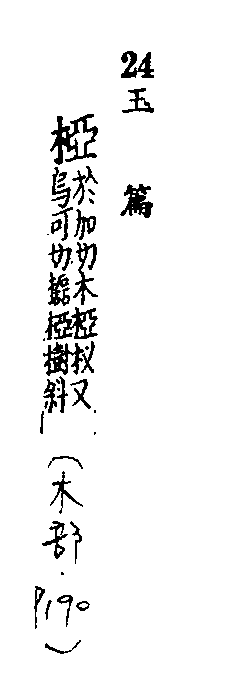 24
玉篇
椏
於加切木椏杈又
烏可切椏樹斜
(木部.P190)